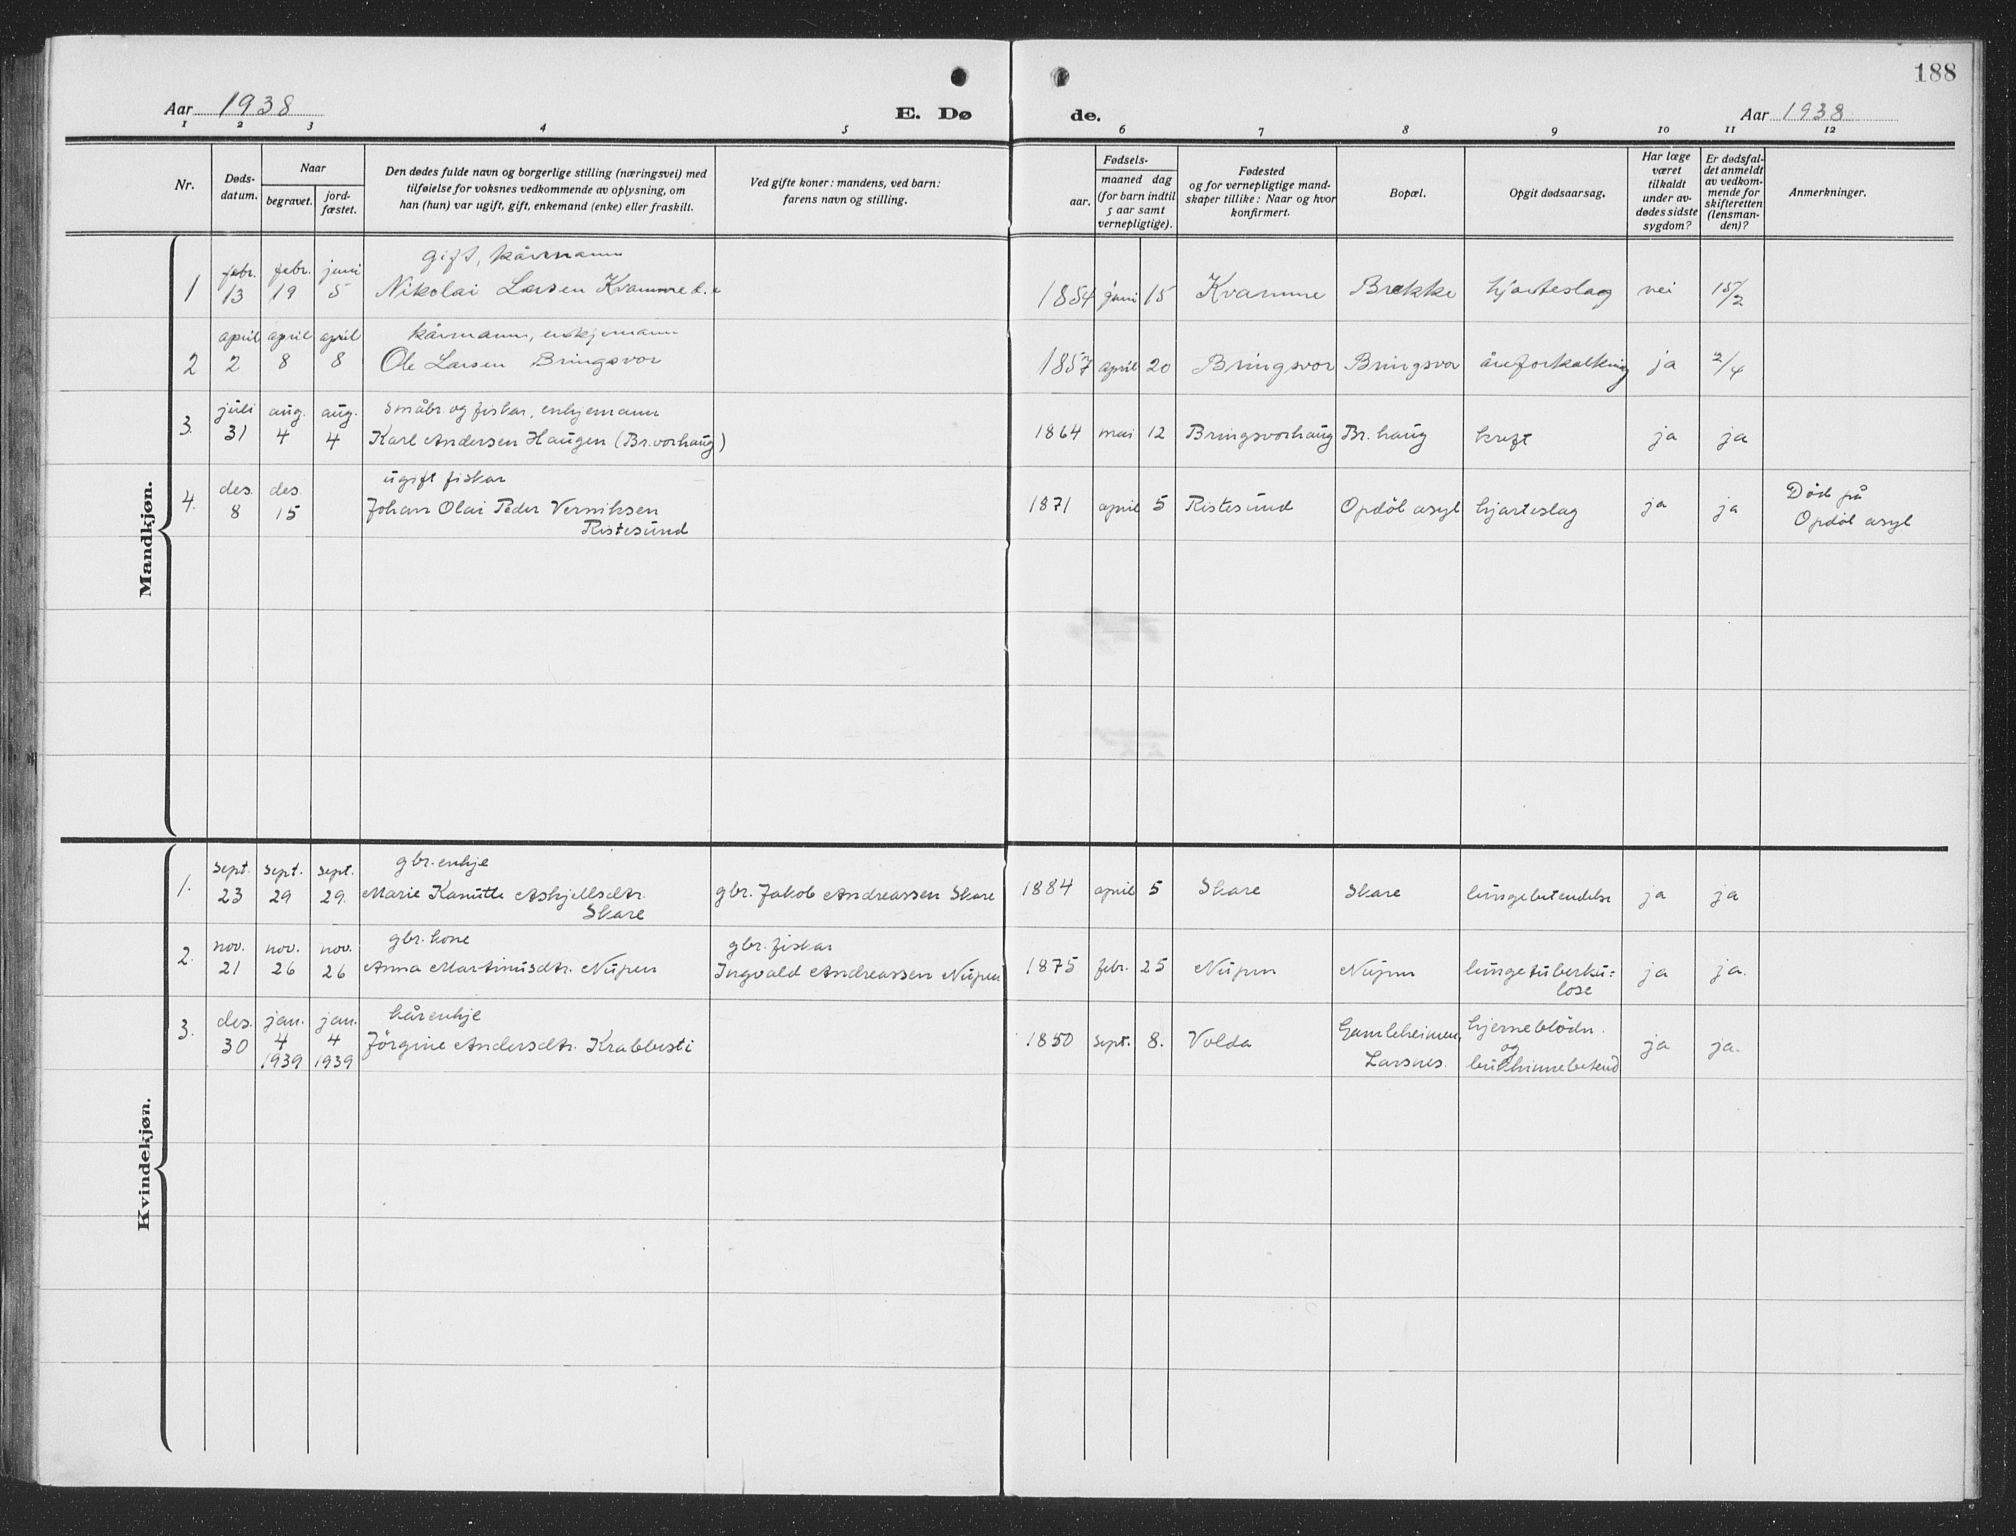 188
Aar 1938
E. Dø
de.
Aar 1938
1 2 3 4 5 6 7 8 9 10 11 12
Nr.
Døds-
datum.
Naar
begravet.
jord-
fæstet.
Den dødes fulde navn og borgerlige stilling (næringsvei) med
tilføielse for voksnes vedkommende av oplysning, om
han (hun) var ugift, gift, enkemand (enke) eller fraskilt.
Ved gifte koner: mandens, ved barn:
farens navn og stilling.
Fødsels-
aar.
maaned dag
(for barn indtil
5 aar samt
vernepligtige).
Fødested
og for vernepligtige mand-
skaper tillike: Naar og hvor
konfirmert.
Bopæl.
Opgit dødsaarsag.
Har læge
været
tilkaldt
under av-
dødes sidste
sygdom?
Er dødsfal-
det anmeldt
av vedkom-
mende for
skifteretten
(lensman-
den)?
Anmerkninger.
Mandkjøn.
febr. febr. juni gift, kårmann
1 13 19 5 Nikolai Larsen Kvamme d.e 1854 juni 15 Kvamme Brekke hjarteslag nei 15/2
april april april kårmann, enkjemann
2 2 8 8 Ole Larsen Bringsvor 1857 april 20 Bringsvor Bringsvor åreforkalkning ja 2/4
juli aug. aug. småbr. og fiskar, enkjemann
3. 31 4 4 Karl Andersen Haugen (Br.vorhaug) 1864 mai 12 Bringsvorhaug Br.haug kreft ja ja
des. des. ugift fiskar
4. 8 15 Johan Olai Peder Verniksen 1871 april 5 Ristesund Opdöl asyl hjarteslag ja ja Død på
Ristesund Opdöl asyl
Kvindekjøn.
sept. sept. sept. gbr. enkje
1. 23 29 29. Marie Kanutte Askjellsdtr. gbr. Jakob Andreassen Skare 1884 april 5 Skare Skare lungebetendelse ja ja
Skare
nov. nov. nov. gbr. kone gbr. fiskar
2. 21 26 26 Anna Martinusdtr. Nupen Ingvald Andreassen Nupen 1875 febr. 25 Nupen Nupen lungetuberku=
lose ja ja.
des. jan. jan. kårenkje
3. 30 4 4 Jörgine Andersdtr. Krabbesti 1850 sept. 8. Volda Gamleheimen, hjerneblödn.
1939 1939 Larsnes. og
ja ja.